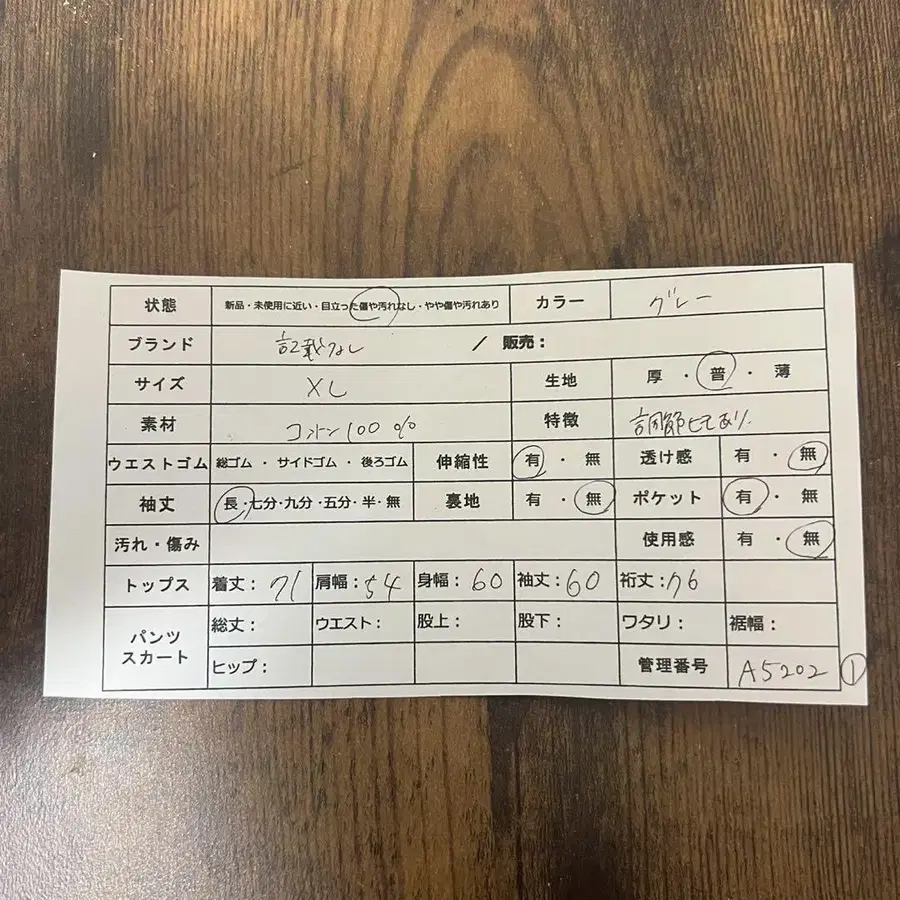 状態 新品・未使用に近い・目立った傷や汚れなし・やや傷や汚れあり カラー グレー
ブランド 記載なし / 販売：
サイズ XL 生地 厚 ・ 普 ・ 薄
素材 コットン100% 特徴 調節ヒモあり
ウエストゴム 総ゴム ・ サイドゴム ・ 後ろゴム 伸縮性 有 ・ 無 透け感 有 ・ 無
袖丈 長・七分・九分・五分・半・無 裏地 有 ・ 無 ポケット 有 ・ 無
汚れ・傷み 使用感 有 ・ 無
トップス 着丈：71 肩幅：54 身幅：60 袖丈：60 裄丈：76
パンツ スカート 総丈： ウエスト： 股上： 股下： ワタリ： 裾幅：
ヒップ： 管理番号 A5202 ①